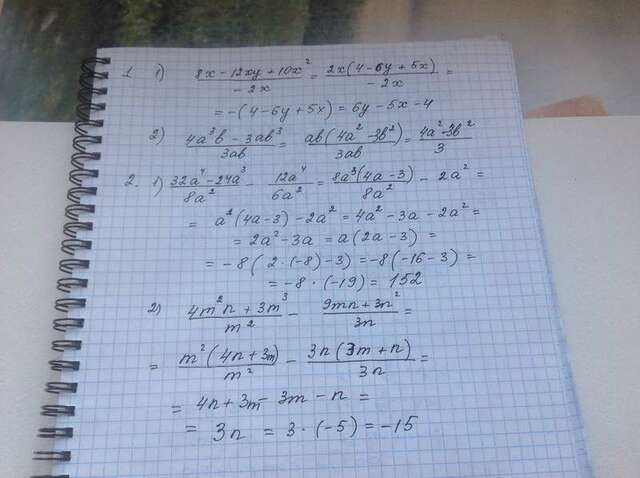 1 1) (8x - 12xy + 10x²)/(-2x) = 2x(4 - 6y + 5x)/(-2x) =
= -(4 - 6y + 5x) = 6y - 5x - 4
2) (4a³b - 3ab³)/(3ab) = ab(4a² - 3b²)/(3ab) = (4a² - 3b²)/3
2. 1) (32a⁴ - 24a³)/(8a²) - 12a⁴/(6a²) = 8a³(4a - 3)/(8a²) - 2a² =
= a²(4a - 3) - 2a² = 4a² - 3a - 2a² =
= 2a² - 3a = a(2a - 3) =
= -8(2·(-8) - 3) = -8(-16 - 3) =
= -8·(-19) = 152
2) (4m²n + 3m³)/m² - (9mn + 3n²)/(3n) =
= m²(4n + 3m)/m² - 3n(3m + n)/(3n) =
= 4n + 3m - 3m - n =
= 3n = 3·(-5) = -15